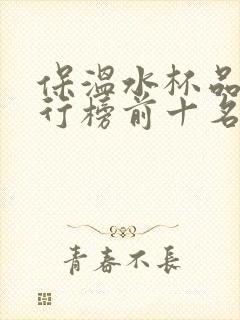 保温水杯品
行榜前十名
青春不長